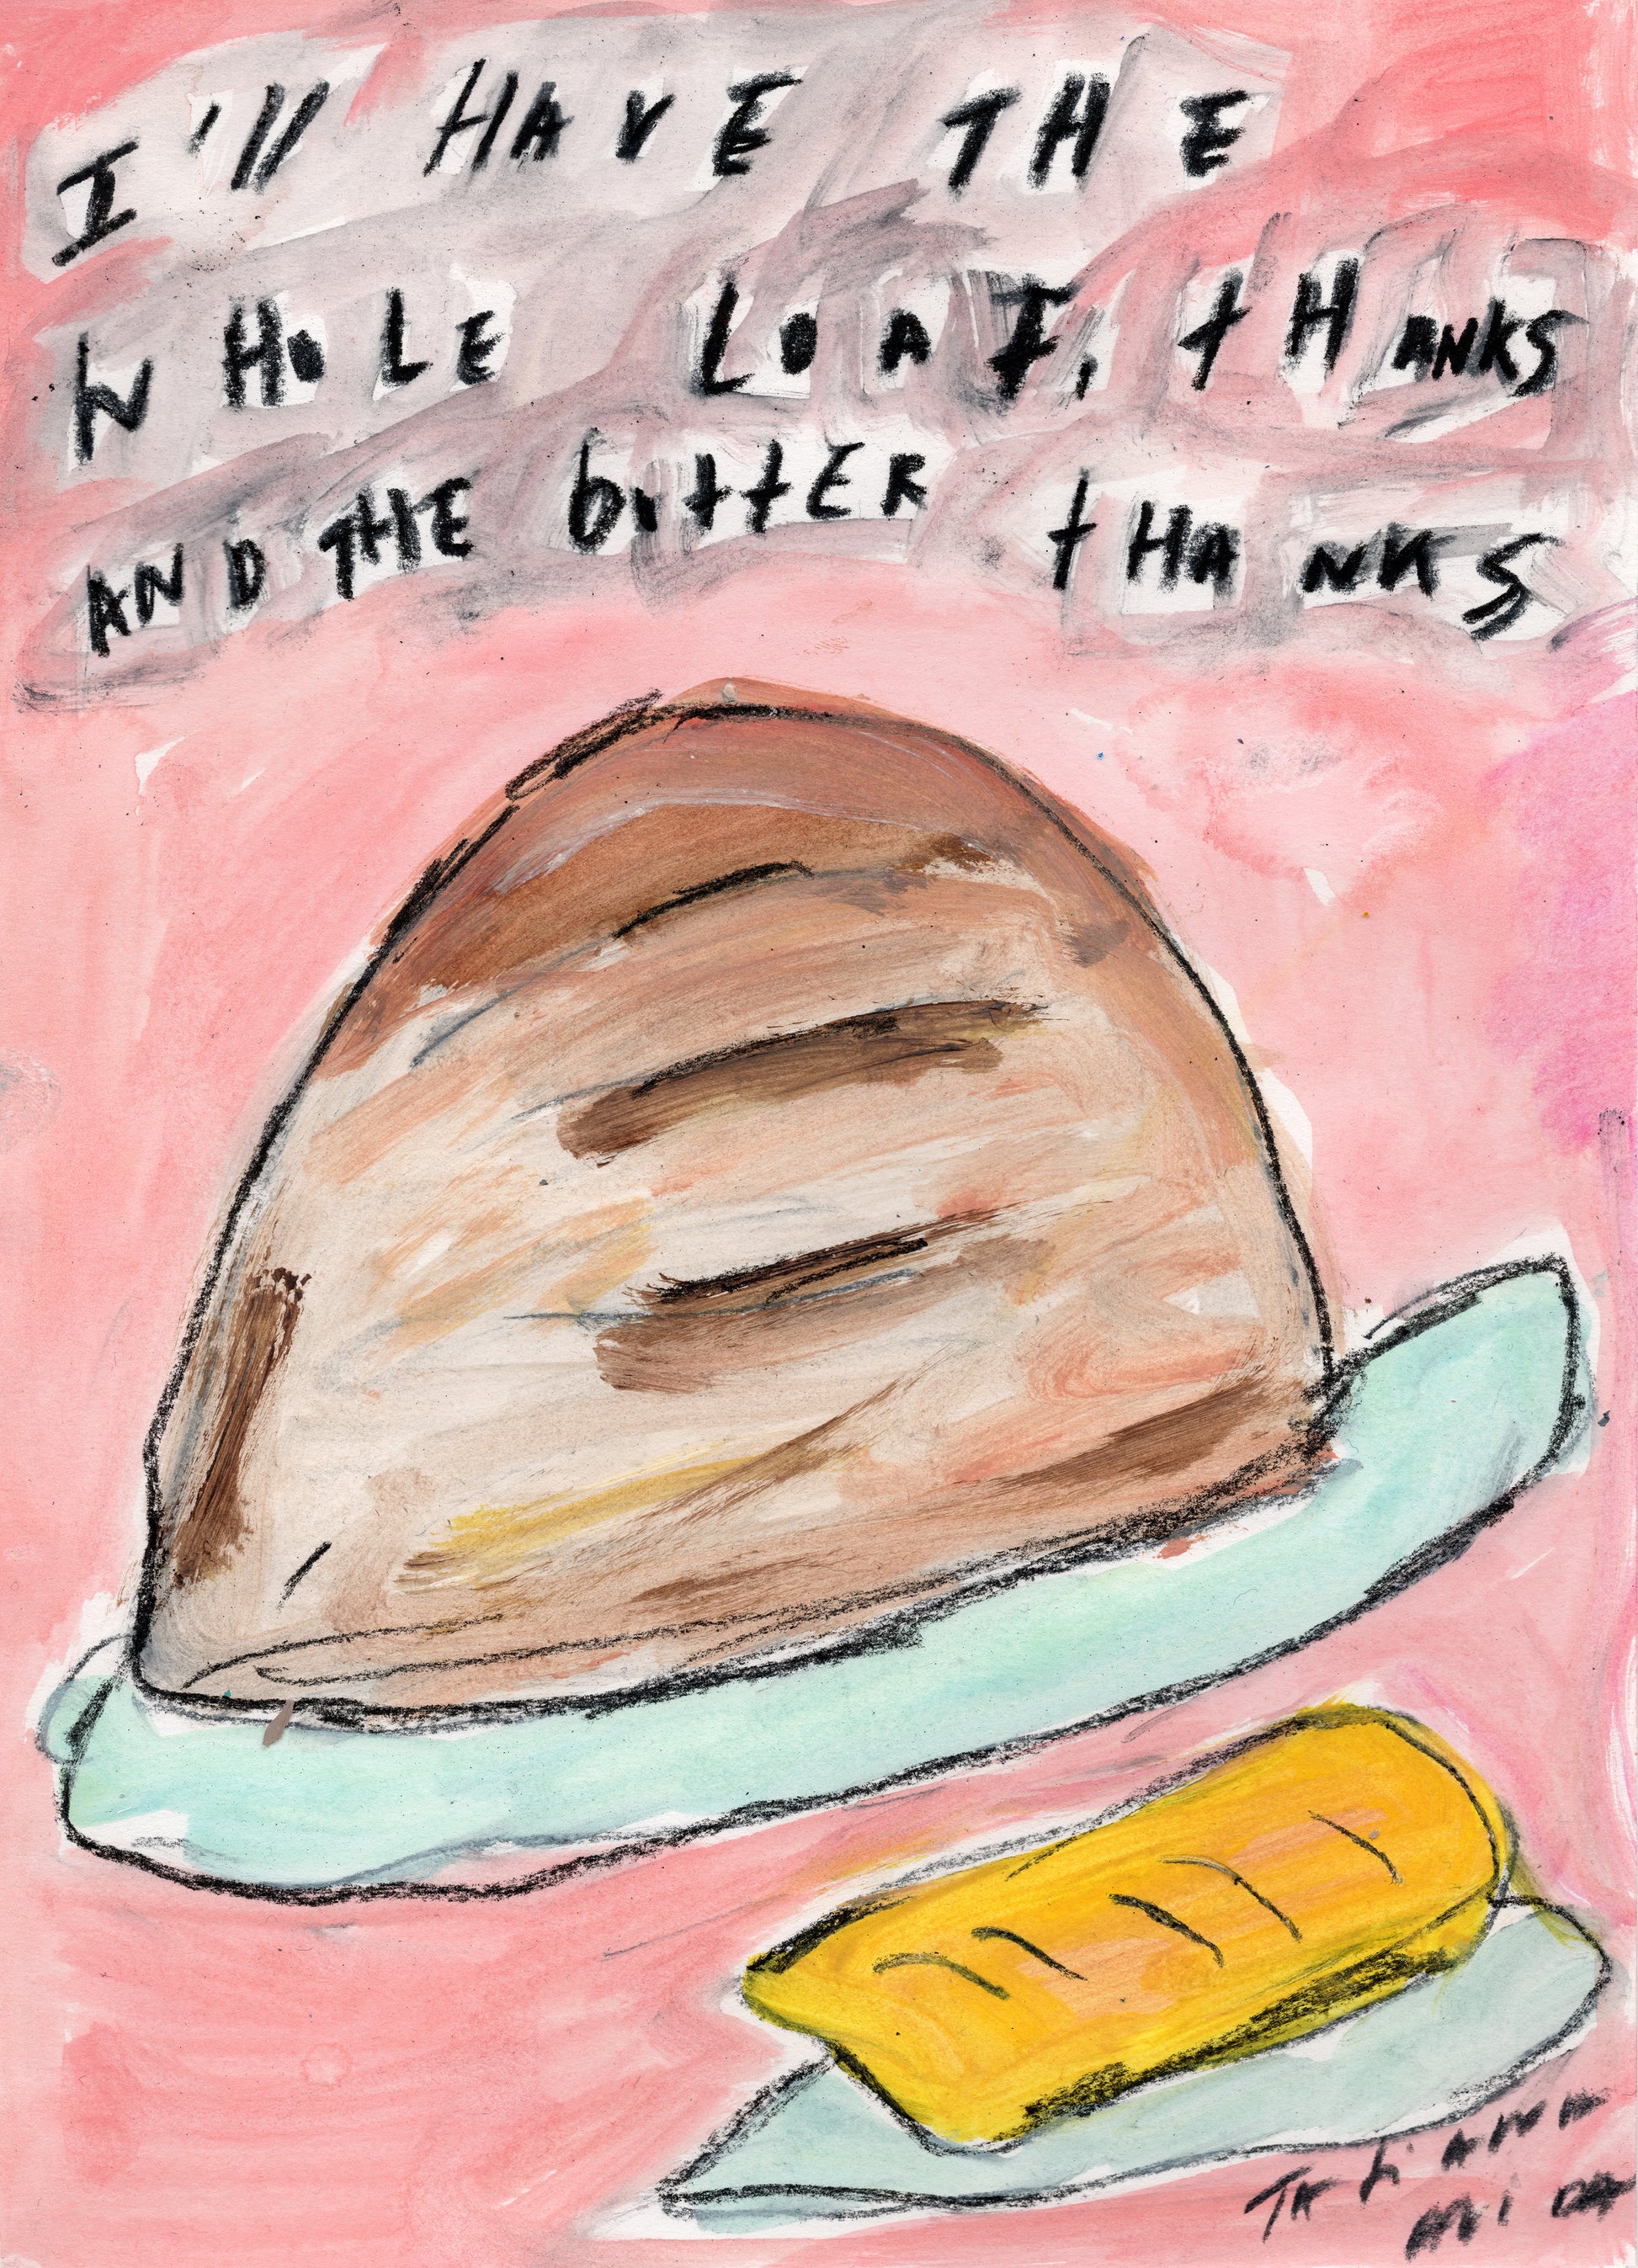 I'll HAVE THE
WHOLE LOAF, tHANKS
AND THE buttER tHANKS